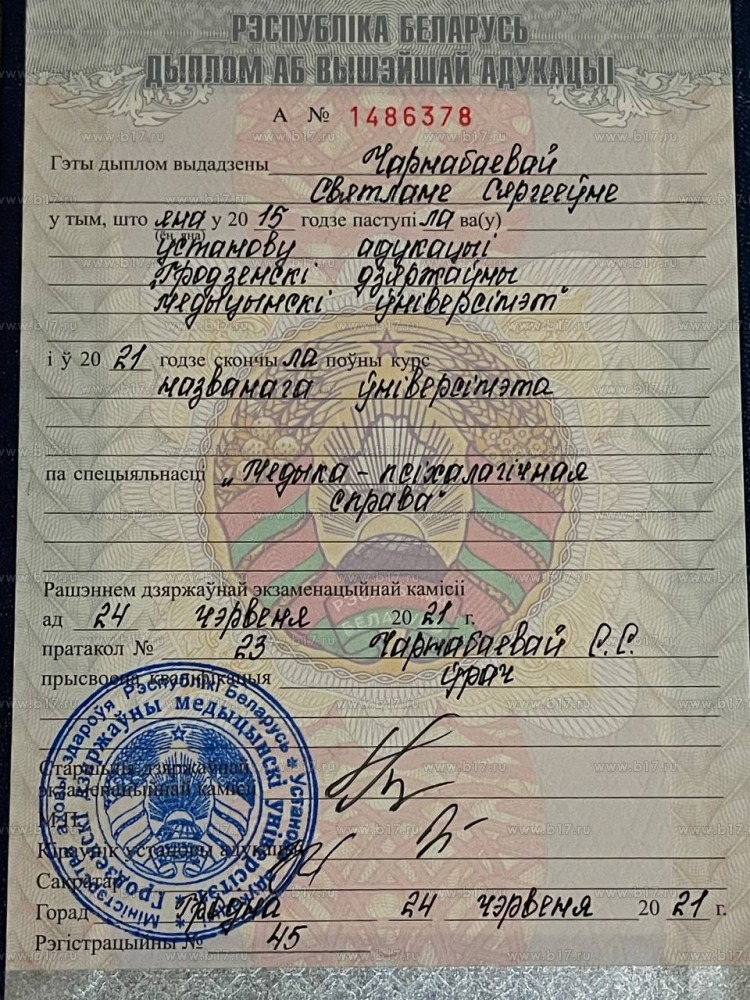 РЭСПУБЛІКА БЕЛАРУСЬ
ДЫПЛОМ АБ ВЫШЭЙШАЙ АДУКАЦЫІ
А № 1486378
Гэты дыплом выдадзены Чарнабаевай
Святлане Сяргееўне
у тым, што яна у 2015 годзе паступіла ва(у)
(ён, яна)
установу адукацыі
"Гродзенскі дзяржаўны
медыцынскі ўніверсітэт"
і ў 2021 годзе скончыла поўны курс
названага ўніверсітэта
па спецыяльнасці "Медыка-псіхалагічная
справа"
Рашэннем дзяржаўнай экзаменацыйнай камісіі
ад 24 чэрвеня 2021 г.
пратакол № 23 Чарнабаевай С.С.
прысвоена кваліфікацыя ўрач
Старшыня дзяржаўнай
экзаменацыйнай камісіі
М.П.
Кіраўнік установы адукацыі
Сакратар
Горад Гродна 24 чэрвеня 2021 г.
Рэгістрацыйны № 45
Міністэрства аховы здароўя Рэспублікі Беларусь * Установа адукацыі *
Гродзенскі дзяржаўны медыцынскі ўніверсітэт
РЭСПУБЛІКА
БЕЛАРУСЬ
www.b17.ru